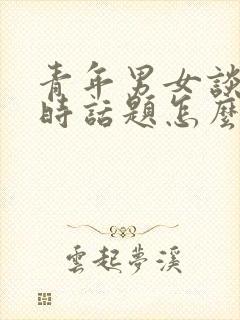 青年男女談
時話題怎麼
雲起夢溪